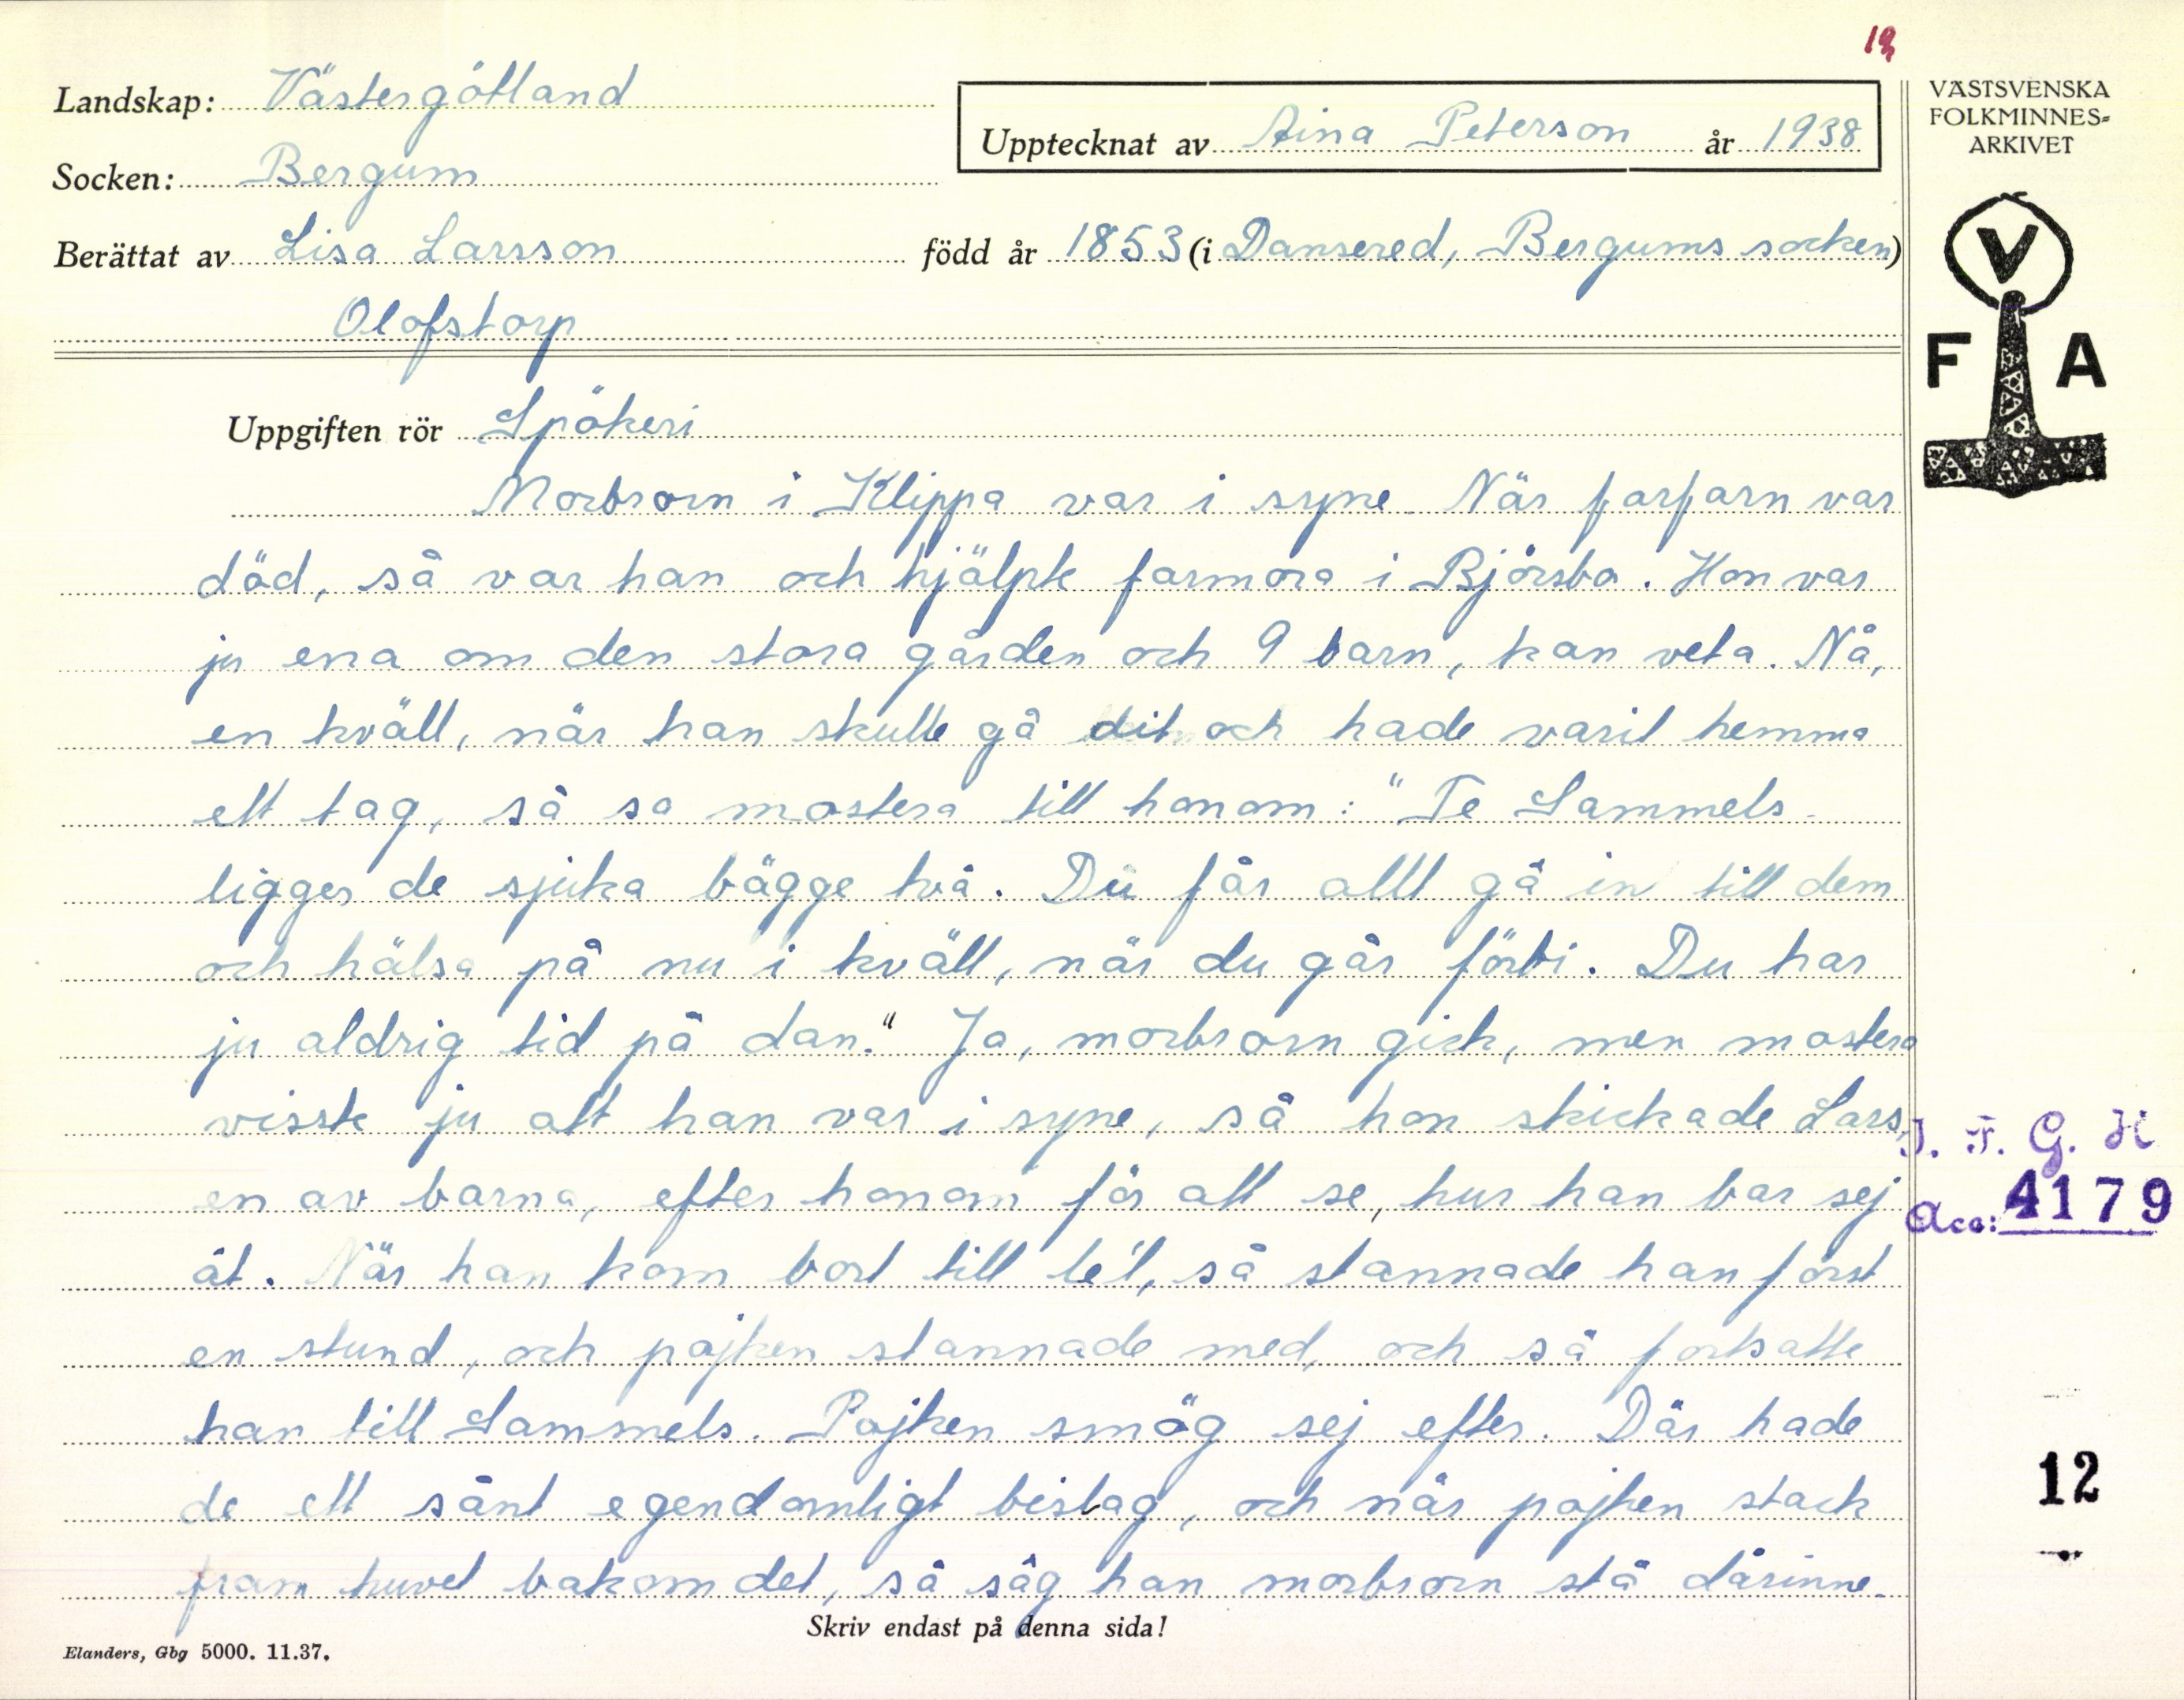 19
Landskap: Västergötland
Upptecknat av Aina Peterson år 1938
VÄSTSVENSKA
FOLKMINNES=
ARKIVET
Socken: Bergum
Berättat av Lisa Larsson född år 1853 (i Dansered, Bergums socken)
Olofstorp
V
F A
Uppgiften rör Spökeri
Morbrorn i Klippa var i syne. När farfarn var
död, så var han och hjälpte farmora i Björsbo. Hon var
ju ena om den stora gården och 9 barn, kan veta. Nå,
en kväll, när han skulle gå dit och hade varit hemma
ett tag, så sa mostera till honom: "Te Sammels
ligger de sjuka bägge två. Du får allt gå in till dem
och hälsa på nu i kväll, när du går förbi. Du har
ju aldrig tid på dan." Ja, morbrorn gick, men mostera
visste ju att han var i syne, så hon skickade Lars,
en av barna, efter honom för att se, hur han bar sej
åt. När han kom bort till le't, så stannade han först
en stund, och pojken stannade med, och så fortsatte
han till Sammels. Pojken smög sej efter. Där hade
de ett sånt egendomligt bislag, och när pojken stack
fram huvet bakom det, så såg han morbrorn stå därinne.
I. F. G. H
Acc: 4179
12
Skriv endast på denna sida!
Elanders, Gbg 5000. 11.37.